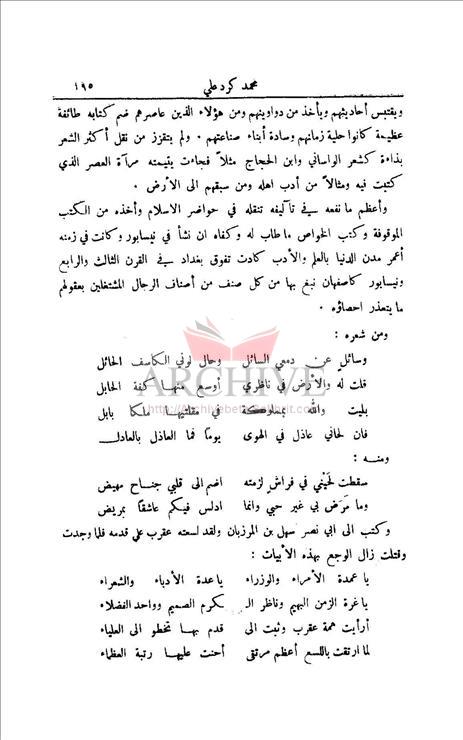 محمد كرد علي ١٩٥
ويقتبس أحاديثهم ويأخذ من دواوينهم ومن هؤلاء الذين عاصرهم ضم كتابه طائفة
عظيمة كانوا حلية زمانهم وسادة أبناء صناعتهم · ولم يتقزز من نقل أكثر الشعر
بذاءة كشعر الواساني وابن الحجاج مثلاً فجاءت يتيمته مرآة العصر الذي
كتبت فيه ومثالاً من أدب اهله ومن سبقهم الى الأرض ·
وأعظم ما نفعه في تآليفه تنقله في حواضر الاسلام وأخذه من الكتب
الموقوفة وكتب الخواص ماطاب له وكفاه ان نشأ في نيسابور وكانت في زمنه
أعمر مدن الدنيا بالعلم والأدب كادت تفوق بغداد في القرن الثالث والرابع
ونيسابور كاصفهان نبغ بها من كل صنف من أصناف الرجال المشتغلين بعقولهم
ما يتعذر احصاؤه ·
ومن شعره :
وسائلٍ عن دمعي السائل وحال لوني الكاسف الحائل
قلت له والأرض في ناظري أوسع منها كفة الحابل
ARCHIVE
بليت والله بمملوكة في مقلتيها ملكا بابل
فان لحاني عاذل في الهوى يومًا فما العاذل بالعادل
ومنه :
سقطت لحَيْني في فراشٍ لزمته اضم الى قلبي جناح مهيض
وما مَرَضٌ بي غير حبي وانما ادلس فيكم عاشقًا بمريض
وكتب الى ابي نصر سهل بن المرزبان ولقد لسعته عقرب على قدمه فلما وجدت
وقتلت زال الوجع بهذه الأبيات :
يا عمدة الأمراء والوزراء ياعدة الأدباء والشعراء
ياغرة الزمن البهيم وناظر الـ ـكرم الصميم وواحد الفضلاء
أرأيت همة عقرب وثبت الى قدم بها تخطو الى العلياء
لما ارتقت باللسع أعظم مرتقى أحنت عليها رتبة العظماء